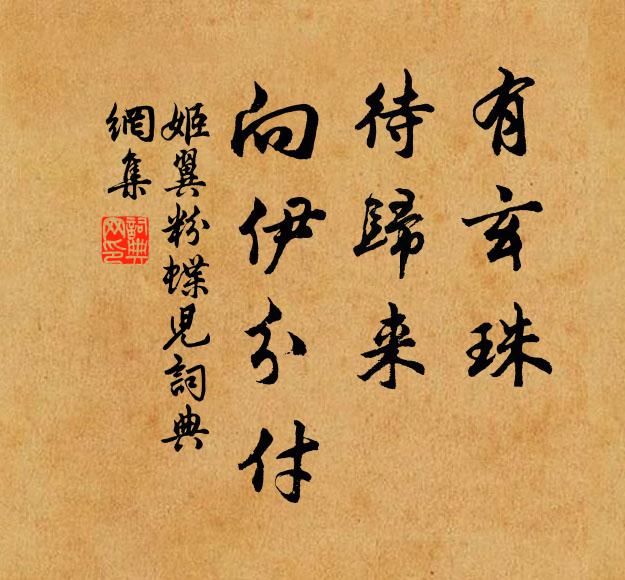 有玄珠
待歸来
向伊分付
姬翼粉蝶児詞典
網集
詞典
网印